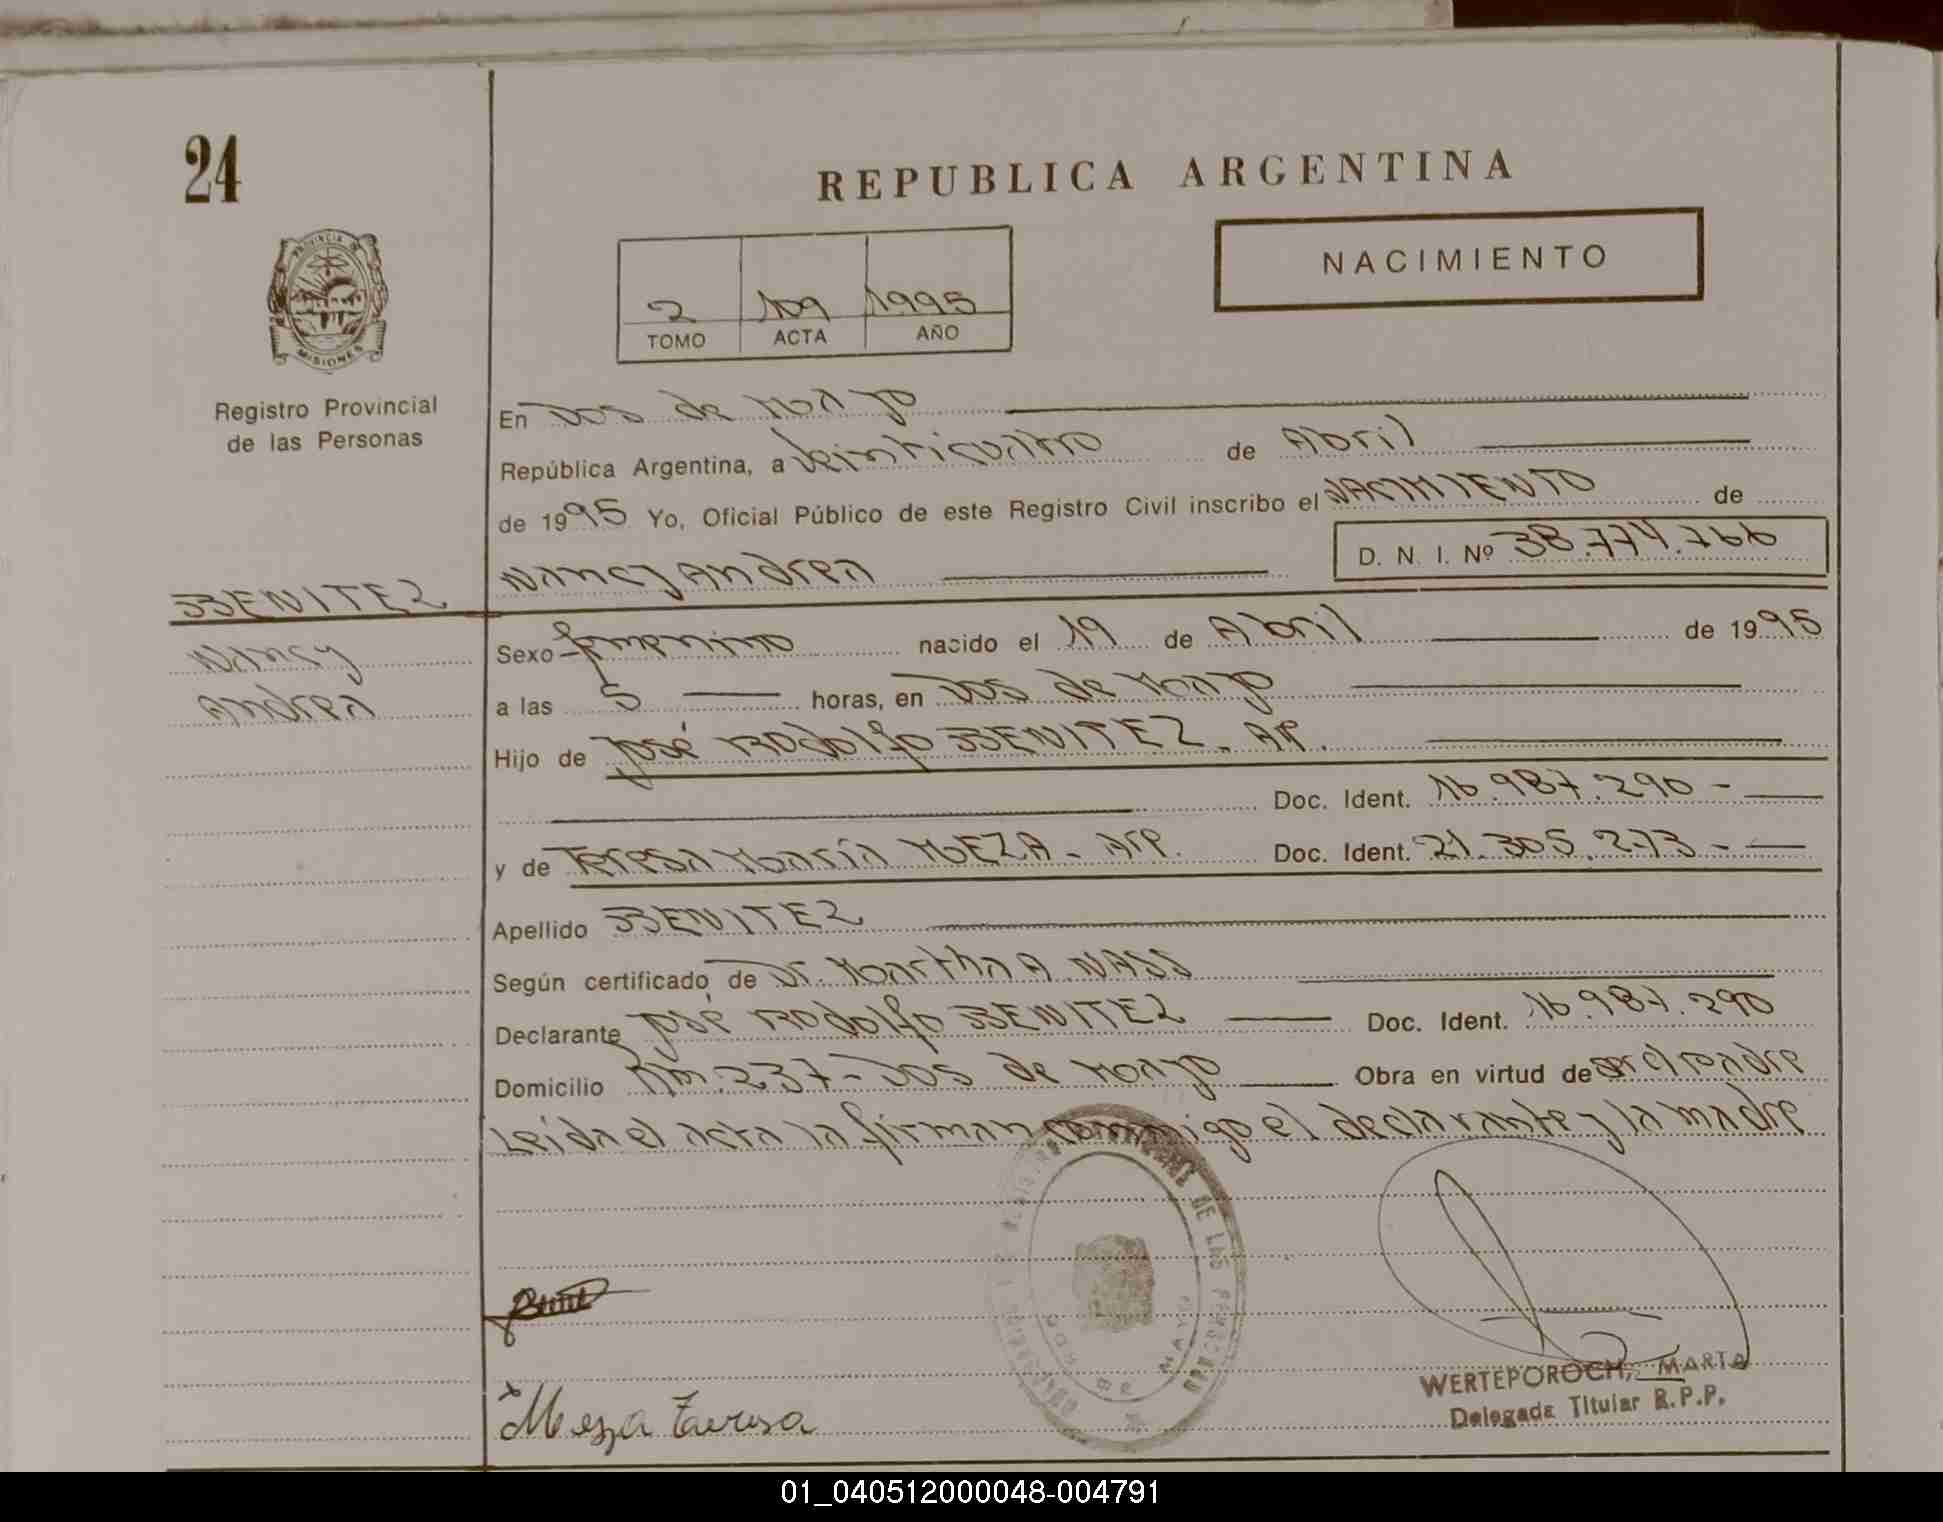 24
REPUBLICA ARGENTINA
NACIMIENTO
2 109 1995
TOMO ACTA AÑO
PROVINCIA DE
MISIONES
Registro Provincial
de las Personas
En Dos de Mayo
República Argentina, a Veinticuatro de Abril
de 1995 Yo, Oficial Público de este Registro Civil inscribo el NACIMIENTO de
Nancy Andrea D. N. I. Nº 38.774.766
BENITEZ
Nancy
Andrea
Sexo femenino nacido el 19 de Abril de 1995
a las 5 horas, en Dos de Mayo
Hijo de José Rodolfo BENITEZ - AP.
Doc. Ident. 16.987.290 -
y de Teresa María MEZA - Arp. Doc. Ident. 21.305.273 -
Apellido BENITEZ
Según certificado de Dr. Martha A NASS
Declarante José Rodolfo BENITEZ Doc. Ident. 16.987.290
Domicilio Km. 237 - Dos de Mayo Obra en virtud de ser el padre
Leída el acta la firman conmigo el declarante y la madre
Meza Teresa
WERTEPOROCH, MARTA
Delegada Titular R.P.P.
01_040512000048-004791